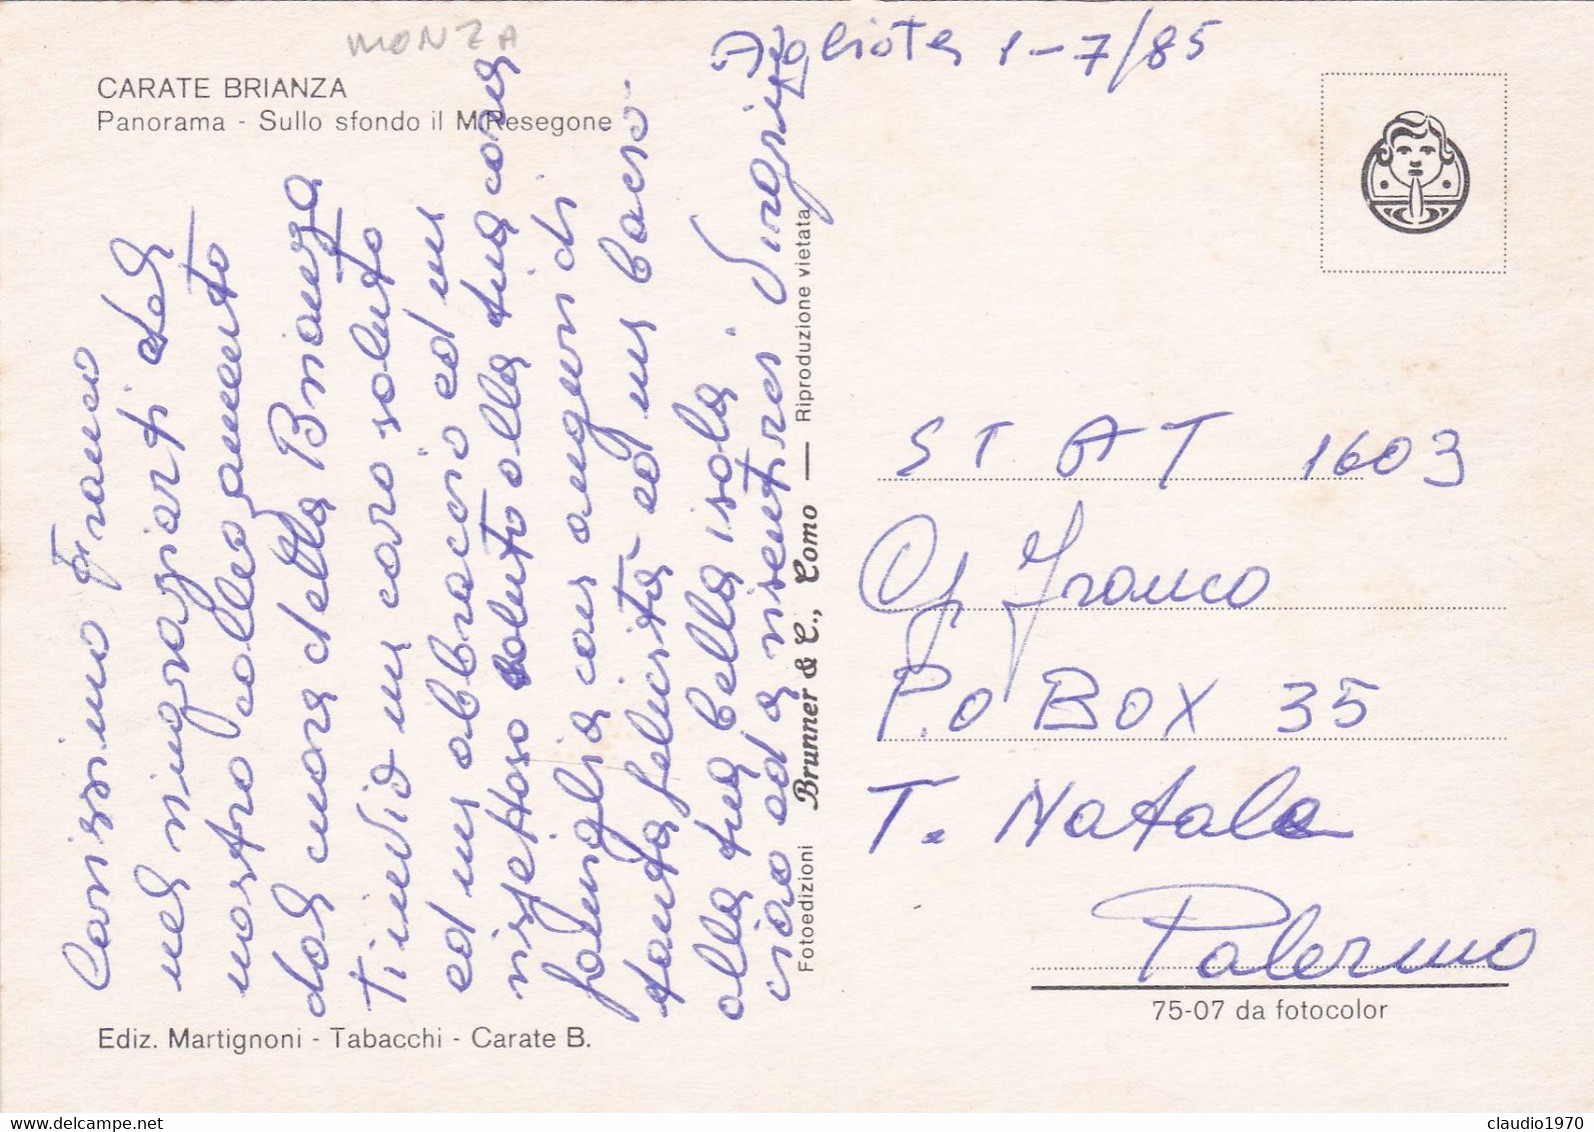 MONZA
CARATE BRIANZA
Panorama - Sullo sfondo il M. Resegone
Agliate 1-7/85
Carissimo Franco
nel ringraziarti del
nostro collegamento
dal cuore della Brianza
Ti invio un caro saluto
ed un abbraccio ed un
rispettoso saluto alla tua cara
famiglia con auguri di
tanta felicità ed un bacio
alla tua bella isola.
ciao ed a risentirci
Fotoedizioni Brunner & C., Como — Riproduzione vietata
ST AT 1603
Op Franco
P.O BOX 35
T. Natale
Palermo
75-07 da fotocolor
Ediz. Martignoni - Tabacchi - Carate B.
www.delcampe.net
claudio1970